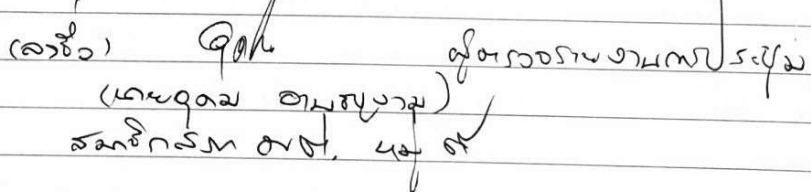 (ลงชื่อ) ผู้ตรวจรายงานการประชุม
(นายอุดม
สมาชิกสภา อบต. หมู่ ๙